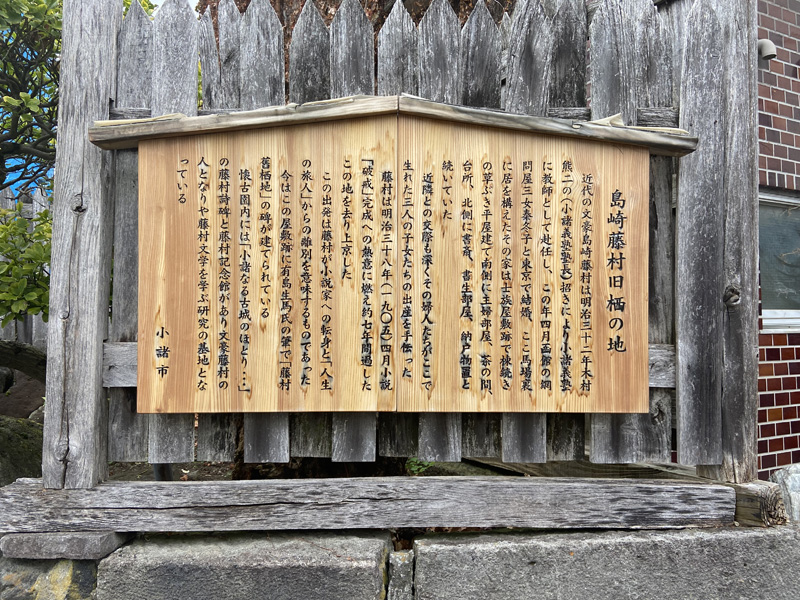 島崎藤村旧栖の地
近代の文豪島崎藤村は明治三十二年木村
熊二の(小諸義塾塾長)招きにより小諸義塾
に教師として赴任し、この年四月函館の網
問屋三女秦冬子と東京で結婚、ここ馬場裏
に居を構えたその家は士族屋敷跡で棟続き
の草ぶき平屋建で南側に主婦部屋、茶の間、
台所、北側に書斎、書生部屋、納戸物置と
続いていた。
近隣との交際も深くその婦人たちがここで
生れた三人の子女たちの出産を手伝った
藤村は明治三十八年(一九〇五)四月小説
「破戒」完成への熱意に燃え約七年間過した
この地を去り上京した
この出発は藤村が小説家への転身と「人生
の旅人」からの離別を意味するものであった
今はこの屋敷跡に有島生馬氏の筆で「藤村
舊栖地」の碑が建てられている
懐古園内には「小諸なる古城のほとり・・・」
の藤村詩碑と藤村記念館があり文豪藤村の
人となりや藤村文学を学ぶ研究の基地とな
っている
小諸市